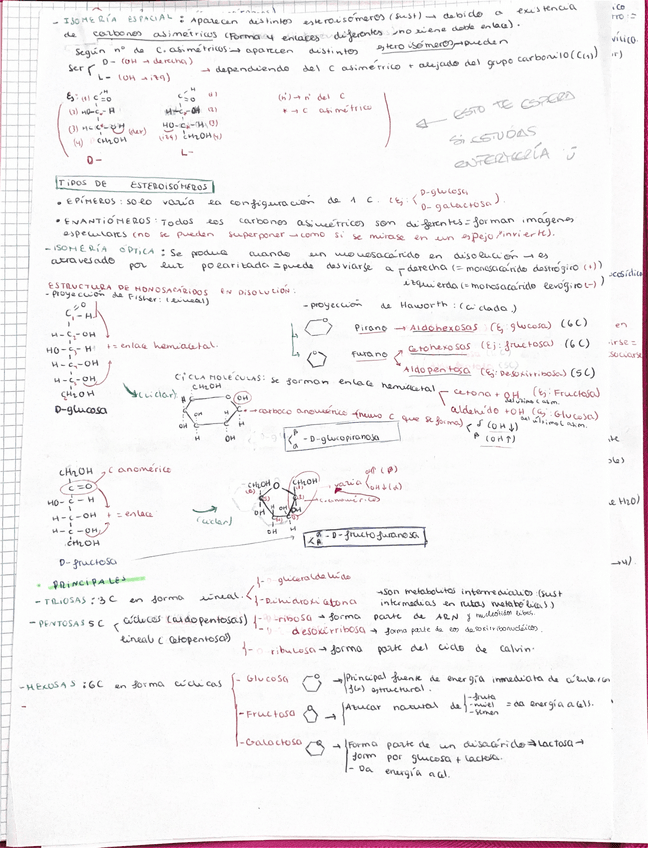 - ISOMERÍA ESPACIAL: Aparecen distintos esteroisómeros (sust) → debido a existencia
de carbonos asimétricos (forma 4 enlaces diferentes → no tiene doble enlace).
Según nº de C. asimétricos → aparecen distintos esteroisómeros → pueden
ser D- (OH → derecha)
L- (OH → izq)
→ dependiendo del C asimétrico + alejado del grupo carbonilo (C(1))
(nº) → nº del C
* → C asimétrico
D-
L-
← ESTO TE ESPERA
SI ESTUDIAS
ENFERMERÍA :)
TIPOS DE ESTEROISÓMEROS
• EPÍMEROS: solo varía la configuración de 1 C. (Ej: D-glucosa,
D-galactosa).
• ENANTIÓMEROS: Todos los carbonos asimétricos son diferentes = forman imágenes
especulares (no se pueden superponer → como si se mirase en un espejo/invierte).
- ISOMERÍA ÓPTICA: Se produce cuando un monosacárido en disolución → es
atravesado por luz polarizada = puede desviarse a derecha (= monosacárido dextrógiro (+))
izquierda (= monosacárido levógiro (-))
ESTRUCTURA DE MONOSACÁRIDOS EN DISOLUCIÓN:
- Proyección de Fisher: (lineal)
- proyección de Haworth: (ciclada)
Pirano → Aldohexosas (Ej: glucosa) (6C)
Furano
Cetohexosas (Ej: fructosa) (6C)
Aldopentosa (Ej: Desoxirribosa) (5C)
= enlace hemiacetal.
CH₂OH
D-glucosa
(ciclar)
CICLA MOLÉCULAS: se forman enlace hemiacetal
cetona + OH (Ej: Fructosa)
aldehído + OH (Ej: Glucosa)
carbono anomérico (nuevo C que se forma)
α (OH↓)
β (OH↑)
-D-glucopiranosa
CH₂OH
C anomérico
C=O
= enlace
CH₂OH
D-fructosa
(ciclar)
varía
C anomérico
-D-fructofuranosa
• PRINCIPALES
- TRIOSAS: 3C en forma lineal
- gliceraldehído
- Dihidroxiacetona
→ son metabolitos intermediarios (sust
intermedias en rutas metabólicas)
- PENTOSAS 5C
cíclicas (aldopentosas)
- ribosa → forma parte de ARN y nucleótidos libres.
- desoxirribosa → forma parte de los desoxirribonucleicos.
lineal (cetopentosas)
- ribulosa → forma parte del ciclo de Calvin.
- HEXOSAS: 6C en forma cíclicas
- Glucosa → Principal fuente de energía inmediata de célula
f(x) estructural.
- Fructosa → Azúcar natural de
- fruta
- miel
- semen
= da energía a cél.
- Galactosa → Forma parte de un disacárido → Lactosa →
form por glucosa + lactosa.
- Da energía a cél.